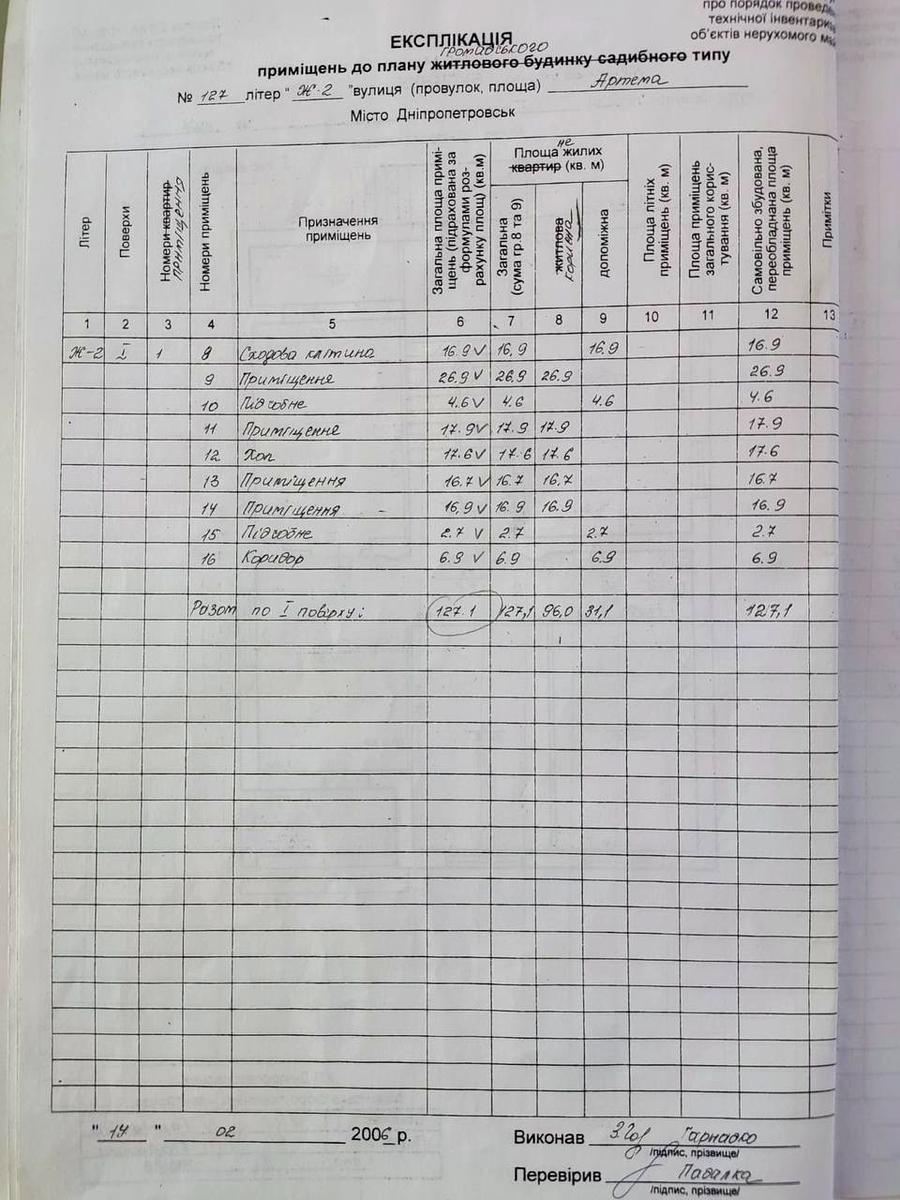 про порядок провед
технічної інвентари
об'єктів нерухомого м
ЕКСПЛІКАЦІЯ
громадського
приміщень до плану житлового будинку садибного типу
№ 127 літер " Ж-2 "вулиця (провулок, площа) Артема
Місто Дніпропетровськ
Літер
Поверхи
Номери квартир приміщення
Номери приміщень
Призначення приміщень
Загальна площа приміщень (підрахована за формулами розрахунку площ) (кв.м)
не
Площа жилих квартир (кв. м)
Загальна (сума гр.8 та 9)
житлова корисна
допоміжна
Площа літніх приміщень (кв. м)
Площа приміщень загального користування (кв. м)
Самовільно збудована, переобладнана площа приміщень (кв. м)
Примітки
1 2 3 4 5 6 7 8 9 10 11 12 13
Ж-2 I 1 8 Сходова клітина 16.9 V 16,9 16.9 16.9
9 Приміщення 26.9 V 26.9 26.9 26.9
10 Підсобне 4.6 V 4.6 4.6 4.6
11 Приміщення 17.9 V 17.9 17.9 17.9
12 Хол 17.6 V 17.6 17.6 17.6
13 Приміщення 16.7 V 16.7 16,7 16.7
14 Приміщення - 16,9 V 16.9 16.9 16.9
15 Підсобне 2.7 V 2.7 2.7 2.7
16 Коридор 6.9 V 6.9 6.9 6.9
Разом по I поверху: 127.1 127,1 96,0 31,1 127,1
" 14 " 02 2006 р.
Виконав Гарнадко
/підпис, прізвище/
Перевірив Павалка
/підпис, прізвище/